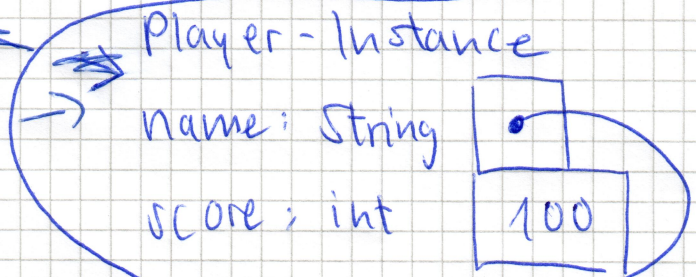 Player-Instance
name: String
score: int 100